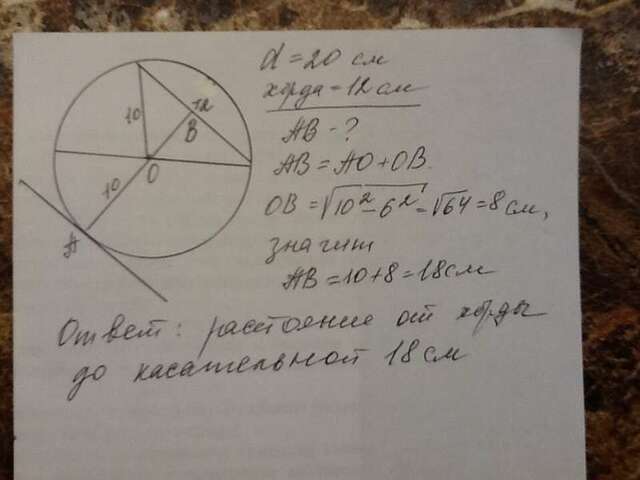 d = 20 см
хорда = 12 см
AB - ?
AB = AO + OB.
OB = √10² - 6² = √64 = 8 см,
значит
AB = 10 + 8 = 18 см
Ответ: растояние от хорды
до касательной 18 см
10
12
B
O
10
A